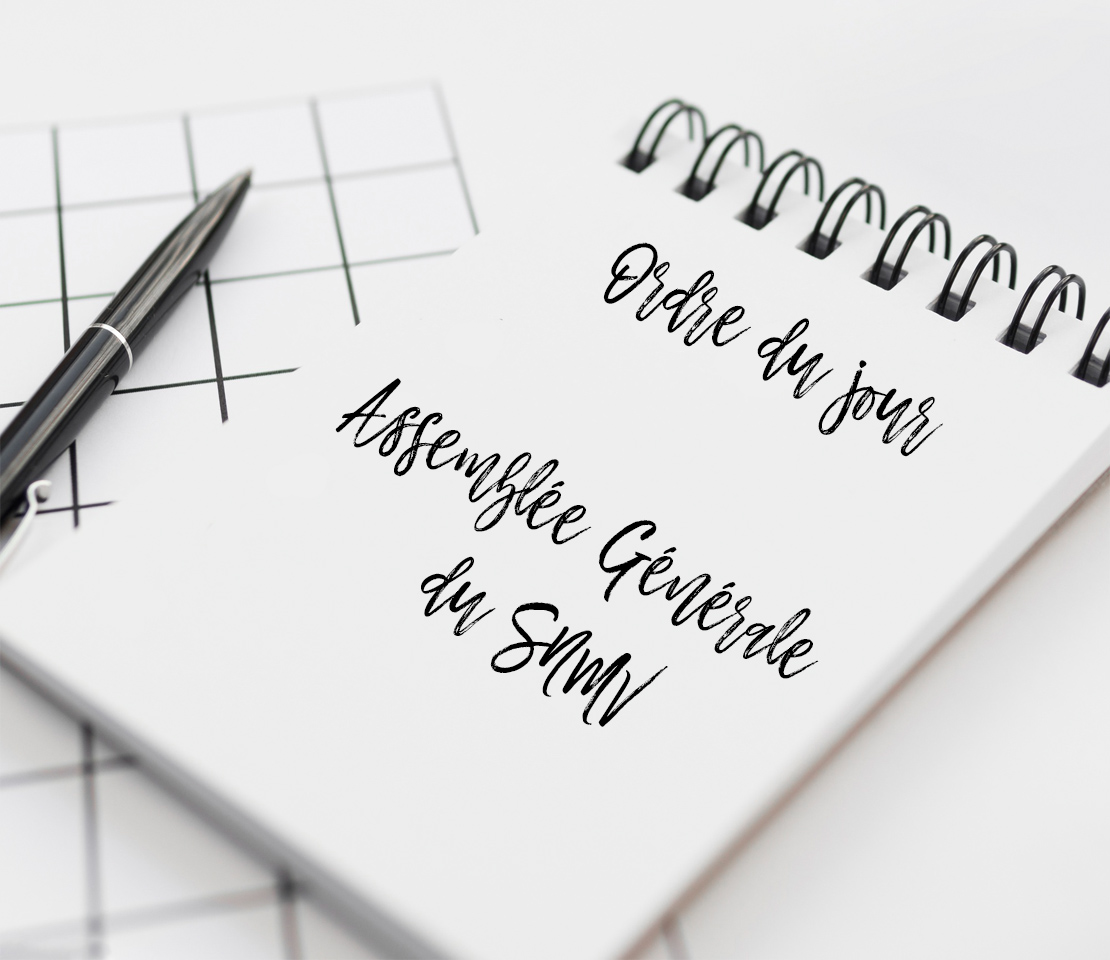 Ordre du jour
Assemblée Générale
du SNMV